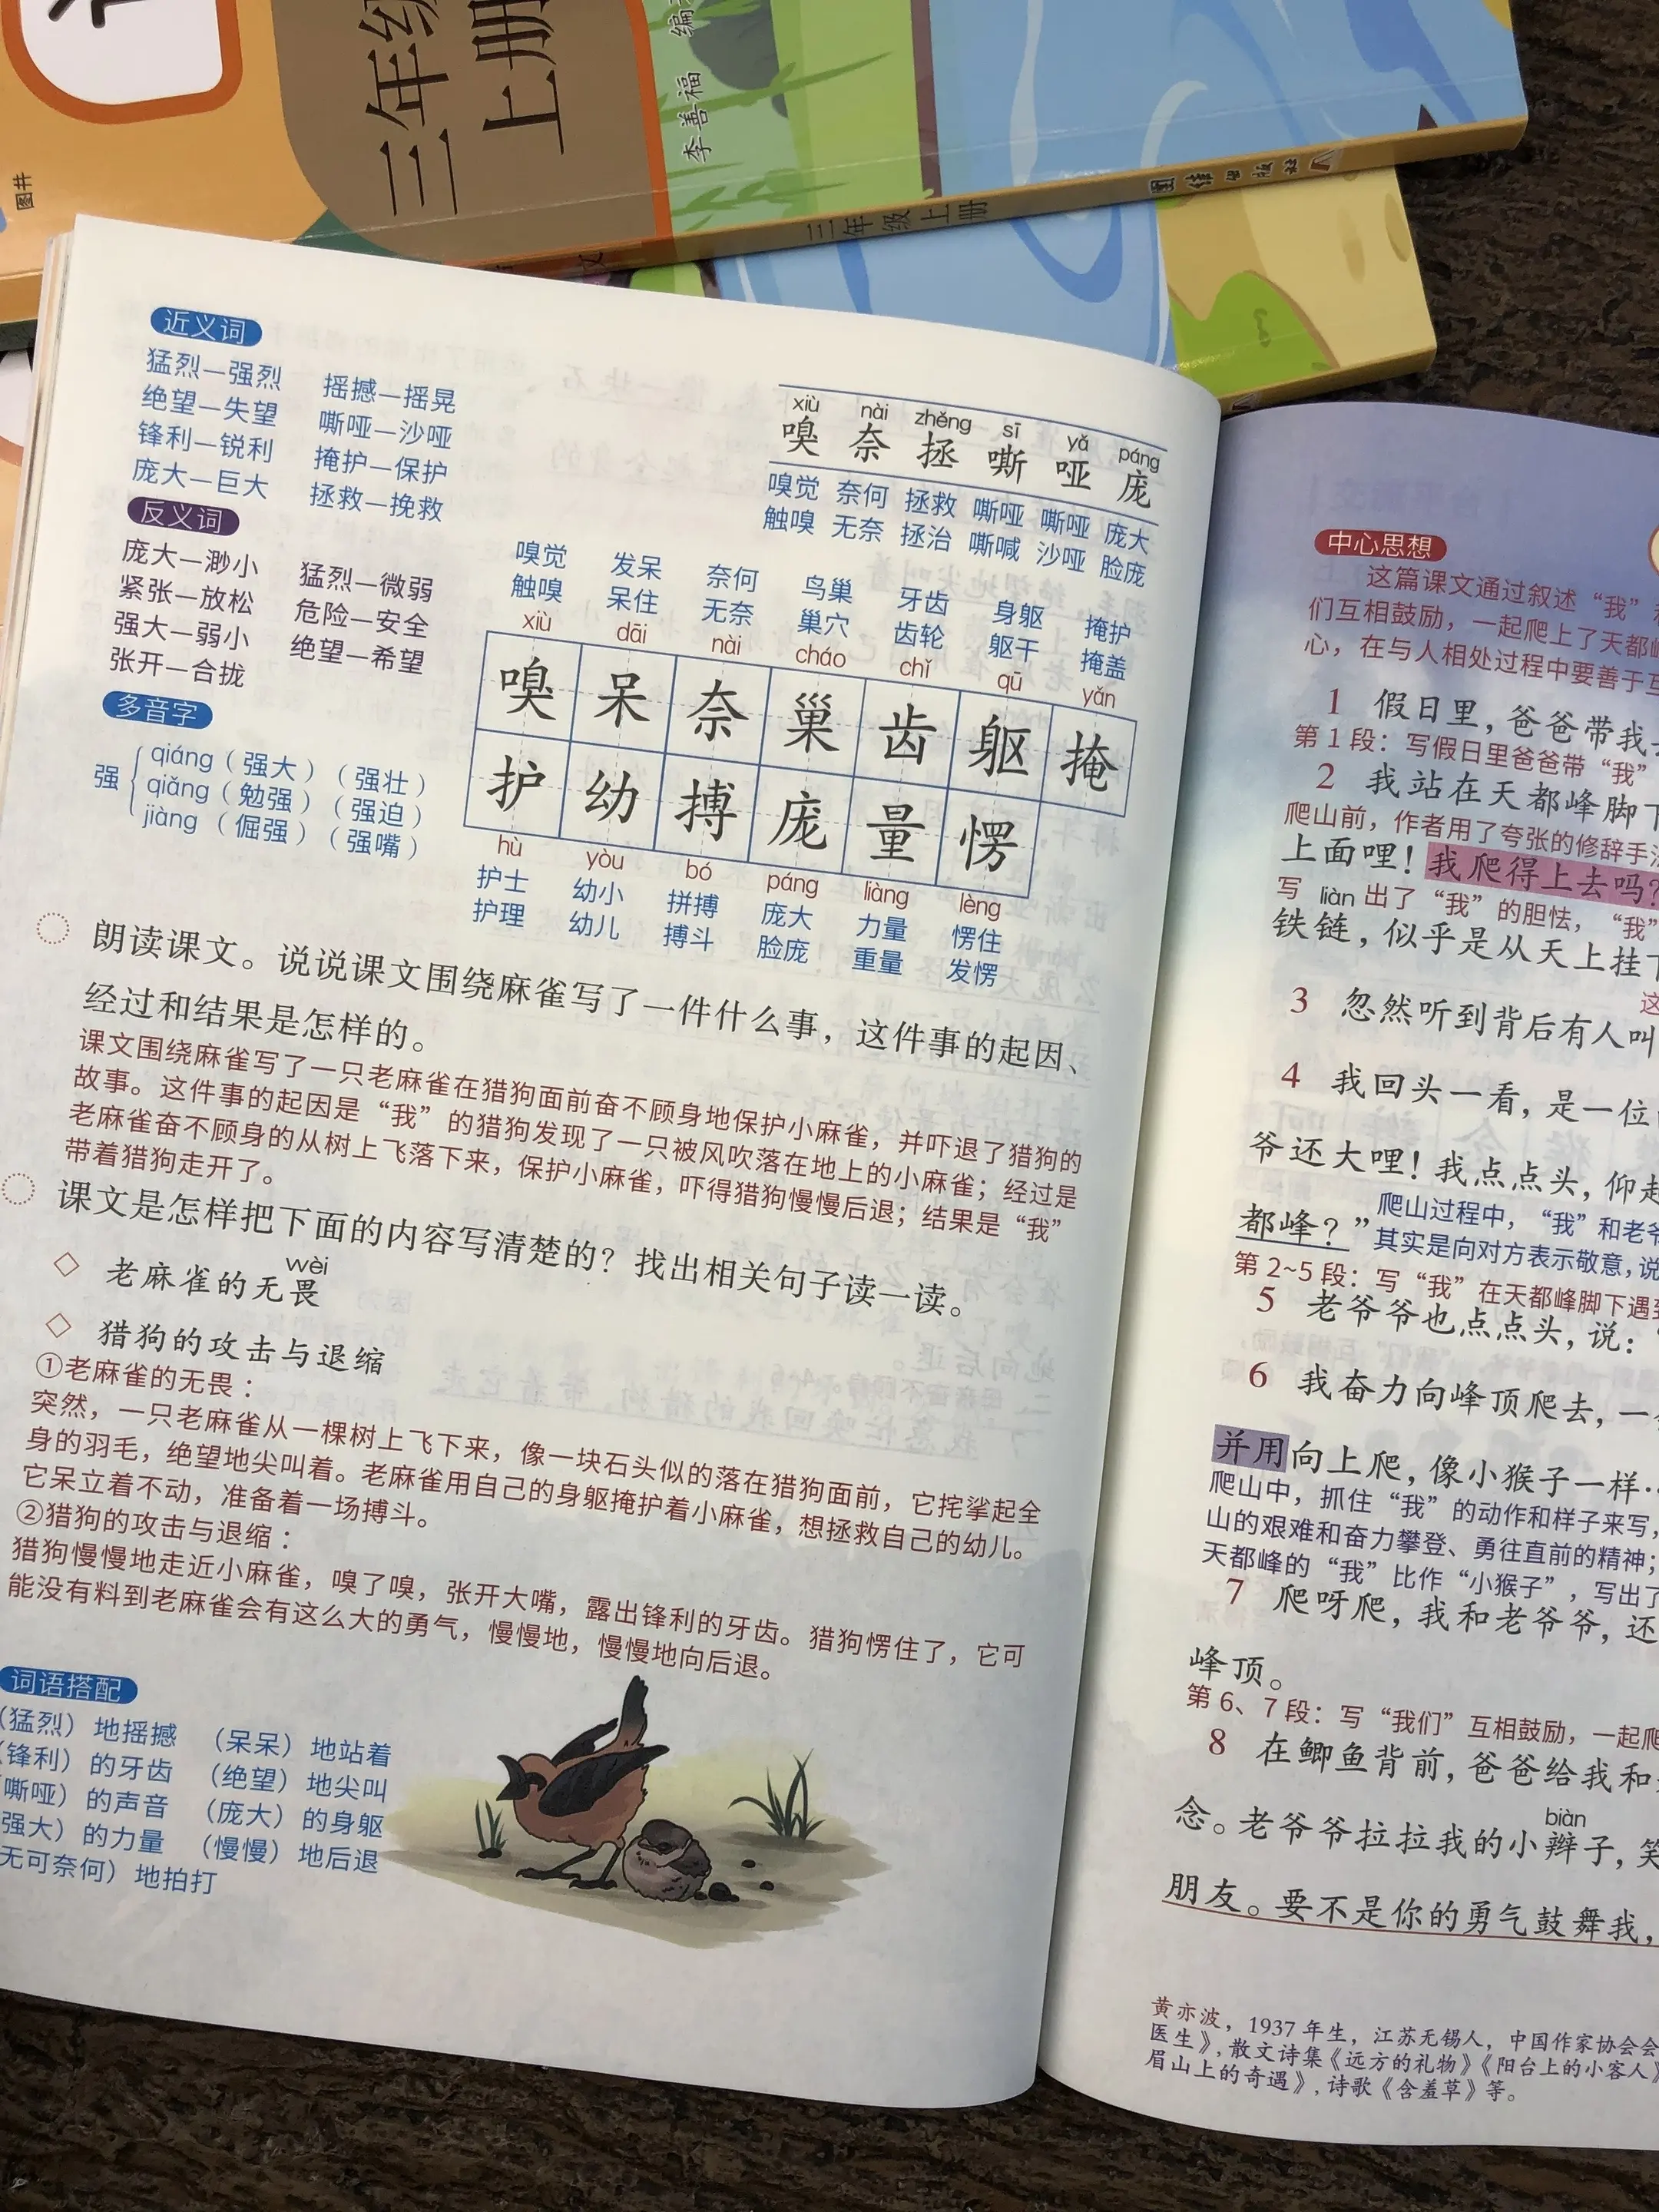 三年级
上册
李善福 编
图井
三年级上册
近义词
猛烈—强烈 摇撼—摇晃
绝望—失望 嘶哑—沙哑
锋利—锐利 掩护—保护
庞大—巨大 拯救—挽救
反义词
庞大—渺小 猛烈—微弱
紧张—放松 危险—安全
强大—弱小 绝望—希望
张开—合拢
多音字
强
qiáng（强大）（强壮）
qiǎng（勉强）（强迫）
jiàng（倔强）（强嘴）
xiù nài zhěng sī yǎ páng
嗅 奈 拯 嘶 哑 庞
嗅觉 奈何 拯救 嘶哑 嘶哑 庞大
触嗅 无奈 拯治 嘶喊 沙哑 脸庞
嗅觉 发呆 奈何 鸟巢 牙齿 身躯 掩护
触嗅 呆住 无奈 巢穴 齿轮 躯干 掩盖
xiù dāi nài cháo chǐ qū yǎn
嗅 呆 奈 巢 齿 躯 掩
护 幼 搏 庞 量 愣
hù yòu bó páng liàng lèng
护士 幼小 拼搏 庞大 力量 愣住
护理 幼儿 搏斗 脸庞 重量 发愣
朗读课文。说说课文围绕麻雀写了一件什么事，这件事的起因、
经过和结果是怎样的。
课文围绕麻雀写了一只老麻雀在猎狗面前奋不顾身地保护小麻雀，并吓退了猎狗的
故事。这件事的起因是“我”的猎狗发现了一只被风吹落在地上的小麻雀；经过是
老麻雀奋不顾身的从树上飞落下来，保护小麻雀，吓得猎狗慢慢后退；结果是“我”
带着猎狗走开了。
课文是怎样把下面的内容写清楚的？找出相关句子读一读。
wèi
◇ 老麻雀的无畏
◇ 猎狗的攻击与退缩
①老麻雀的无畏：
突然，一只老麻雀从一棵树上飞下来，像一块石头似的落在猎狗面前，它挓挲起全
身的羽毛，绝望地尖叫着。老麻雀用自己的身躯掩护着小麻雀，想拯救自己的幼儿。
它呆立着不动，准备着一场搏斗。
②猎狗的攻击与退缩：
猎狗慢慢地走近小麻雀，嗅了嗅，张开大嘴，露出锋利的牙齿。猎狗愣住了，它可
能没有料到老麻雀会有这么大的勇气，慢慢地，慢慢地向后退。
词语搭配
（猛烈）地摇撼 （呆呆）地站着
（锋利）的牙齿 （绝望）地尖叫
嘶哑）的声音 （庞大）的身躯
强大）的力量 （慢慢）地后退
无可奈何）地拍打
中心思想
这篇课文通过叙述“我”
们互相鼓励，一起爬上了天都峰
心，在与人相处过程中要善于互
1 假日里，爸爸带我
第1段：写假日里爸爸带“我”
2 我站在天都峰脚下
爬山前，作者用了夸张的修辞手法
上面哩！我爬得上去吗？
写 liàn 出了“我”的胆怯，“我”
铁链，似乎是从天上挂下
这
3 忽然听到背后有人叫
4 我回头一看，是一位
爷还大哩！我点点头，仰起
都峰？”
爬山过程中，“我”和老爷
其实是向对方表示敬意，说
第2~5段：写“我”在天都峰脚下遇到
5 老爷爷也点点头，说：
6 我奋力向峰顶爬去，一
并用向上爬，像小猴子一样…
爬山中，抓住“我”的动作和样子来写，
山的艰难和奋力攀登、勇往直前的精神；
天都峰的“我”比作“小猴子”，写出了
7 爬呀爬，我和老爷爷，还
峰顶。
第6、7段：写“我们”互相鼓励，一起爬
8 在鲫鱼背前，爸爸给我和
biàn
念。老爷爷拉拉我的小辫子，笑
朋友。要不是你的勇气鼓舞我，
黄亦波，1937年生，江苏无锡人，中国作家协会会
医生》，散文诗集《远方的礼物》《阳台上的小客人》
眉山上的奇遇》，诗歌《含羞草》等。